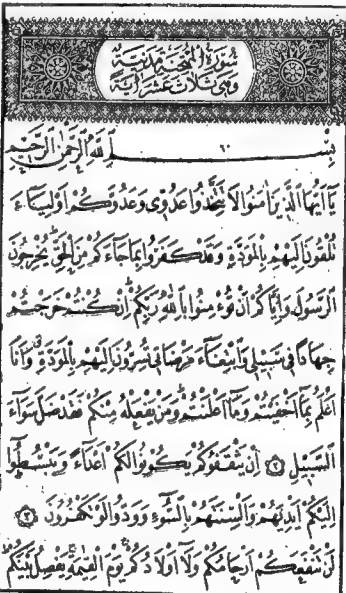 سُورَةُ الْمُمْتَحِنَةِ مَدَنِيَّةٌ
وَهِيَ ثَلَاثَ عَشَرَ اٰيَةً
٦٠
بِسْــــــمِ اللّٰهِ الرَّحْمٰنِ الرَّحِيمِ
يَٓا اَيُّهَا الَّذِينَ اٰمَنُوا لَا تَتَّخِذُوا عَدُوِّى وَعَدُوَّكُمْ اَوْلِيَٓاءَ
تُلْقُونَ اِلَيْهِمْ بِالْمَوَدَّةِ وَقَدْ كَفَرُوا بِمَا جَٓاءَكُمْ مِنَ الْحَقِّ يُخْرِجُونَ
الرَّسُولَ وَاِيَّاكُمْ اَنْ تُؤْمِنُوا بِاللّٰهِ رَبِّكُمْ اِنْ كُنْتُمْ خَرَجْتُمْ
جِهَادًا فِى سَبِيلِى وَابْتِغَٓاءَ مَرْضَاتِى تُسِرُّونَ اِلَيْهِمْ بِالْمَوَدَّةِ وَاَنَا
اَعْلَمُ بِمَٓا اَخْفَيْتُمْ وَمَٓا اَعْلَنْتُمْ وَمَنْ يَفْعَلْهُ مِنْكُمْ فَقَدْ ضَلَّ سَوَٓاءَ
السَّبِيلِ ﴿٢﴾ اِنْ يَثْقَفُوكُمْ يَكُونُوا لَكُمْ اَعْدَٓاءً وَيَبْسُطُٓوا
اِلَيْكُمْ اَيْدِيَهُمْ وَاَلْسِنَتَهُمْ بِالسُّٓوءِ وَوَدُّوا لَوْ تَكْفُرُونَ ﴿٣﴾
لَنْ تَنْفَعَكُمْ اَرْحَامُكُمْ وَلَٓا اَوْلَادُكُمْ يَوْمَ الْقِيٰمَةِ يَفْصِلُ بَيْنَكُمْ